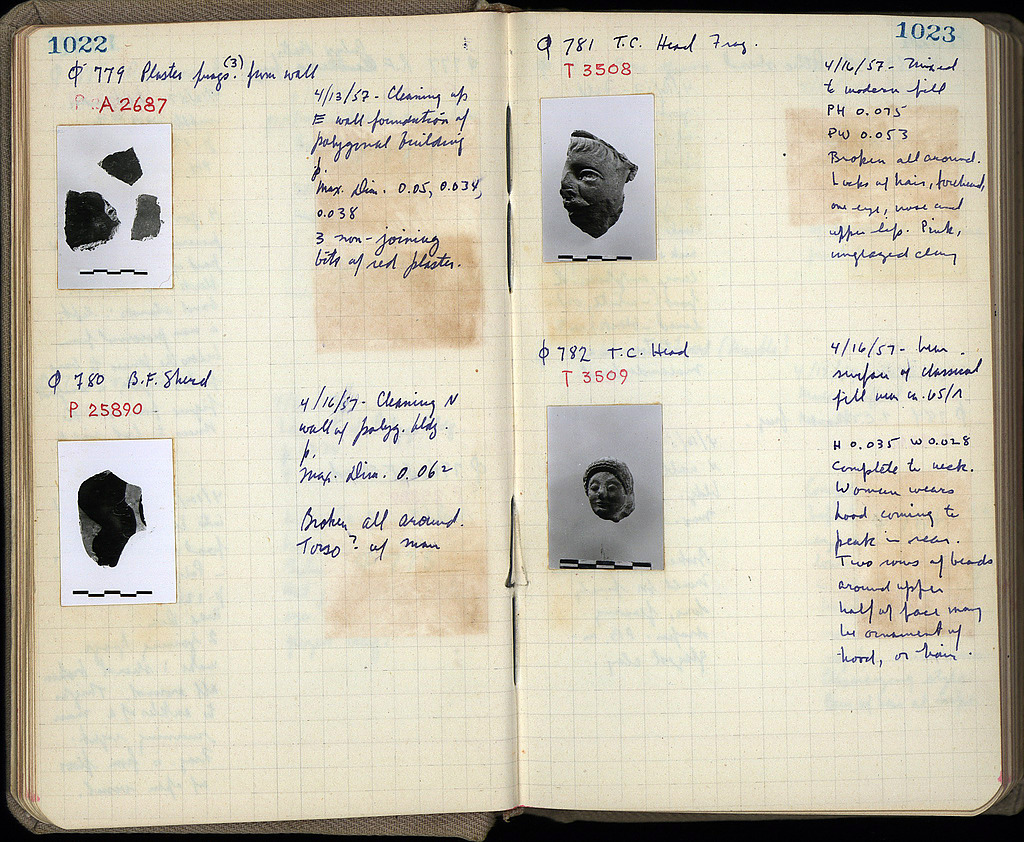 1022
Φ 779 Plaster frags. (3) from wall
A 2687
4/13/57 - Cleaning up
E wall foundation of
polygonal building
p.
Max. Dim. 0.05, 0.034,
0.038
3 non-joining
bits of red plaster.
Φ 780 B.F. Sherd
P 25890
4/16/57 - Cleaning N
wall of polyg. bldg.
p.
Max. Dim. 0.062
Broken all around.
Torso? of man
1023
Φ 781 T.C. Head Frag.
T 3508
4/16/57 - Mixed
to modern fill
PH 0.075
PW 0.053
Broken all around.
Locks of hair, forehead,
one eye, nose and
upper lip. Pink,
unglazed clay
Φ 782 T.C. Head
T 3509
4/16/57 - near
surface of classical
fill near ca. 65/Λ
H 0.035 W 0.028
Complete to neck.
Woman wears
hood coming to
peak in rear.
Two rows of beads
around upper
half of face may
be ornament of
hood, or hair.